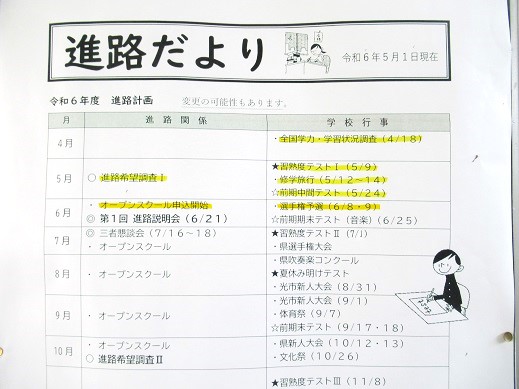 進路だより
令和6年5月1日現在
令和6年度 進路計画 変更の可能性もあります。
月 進路関係 学校行事
4月 ・全国学力・学習状況調査(4/18)
★習熟度テストⅠ(5/9)
5月 ○ 進路希望調査Ⅰ ・修学旅行(5/12~14)
☆前期中間テスト(5/24)
・ オープンスクール申込開始 ・選手権予選(6/8・9)
6月 ◎ 第1回 進路説明会(6/21) ☆前期期末テスト(音楽)(6/25)
◎ 三者懇談会(7/16~18) ★習熟度テストⅡ
7月 ・ オープンスクール ・県選手権大会
・県吹奏楽コンクール
8月 ・ オープンスクール ★夏休み明けテスト
・光市新人大会(8/31)
・光市新人大会(9/1)
9月 ・ オープンスクール ・体育祭(9/7)
☆前期末テスト(9/17・18)
10月 ・ オープンスクール ・県新人大会(10/12・13)
○ 進路希望調査Ⅱ ・文化祭(10/26)
★習熟度テストⅢ(11/8)